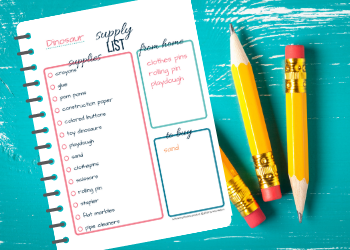 Dinosaur supply
LIST
supplies
crayons
glue
pom poms
construction paper
colored buttons
toy dinosaurs
playdough
sand
clothespins
scissors
rolling pin
stapler
flat marbles
pipe cleaners
from home
clothes pins
rolling pin
playdough
to buy
sand